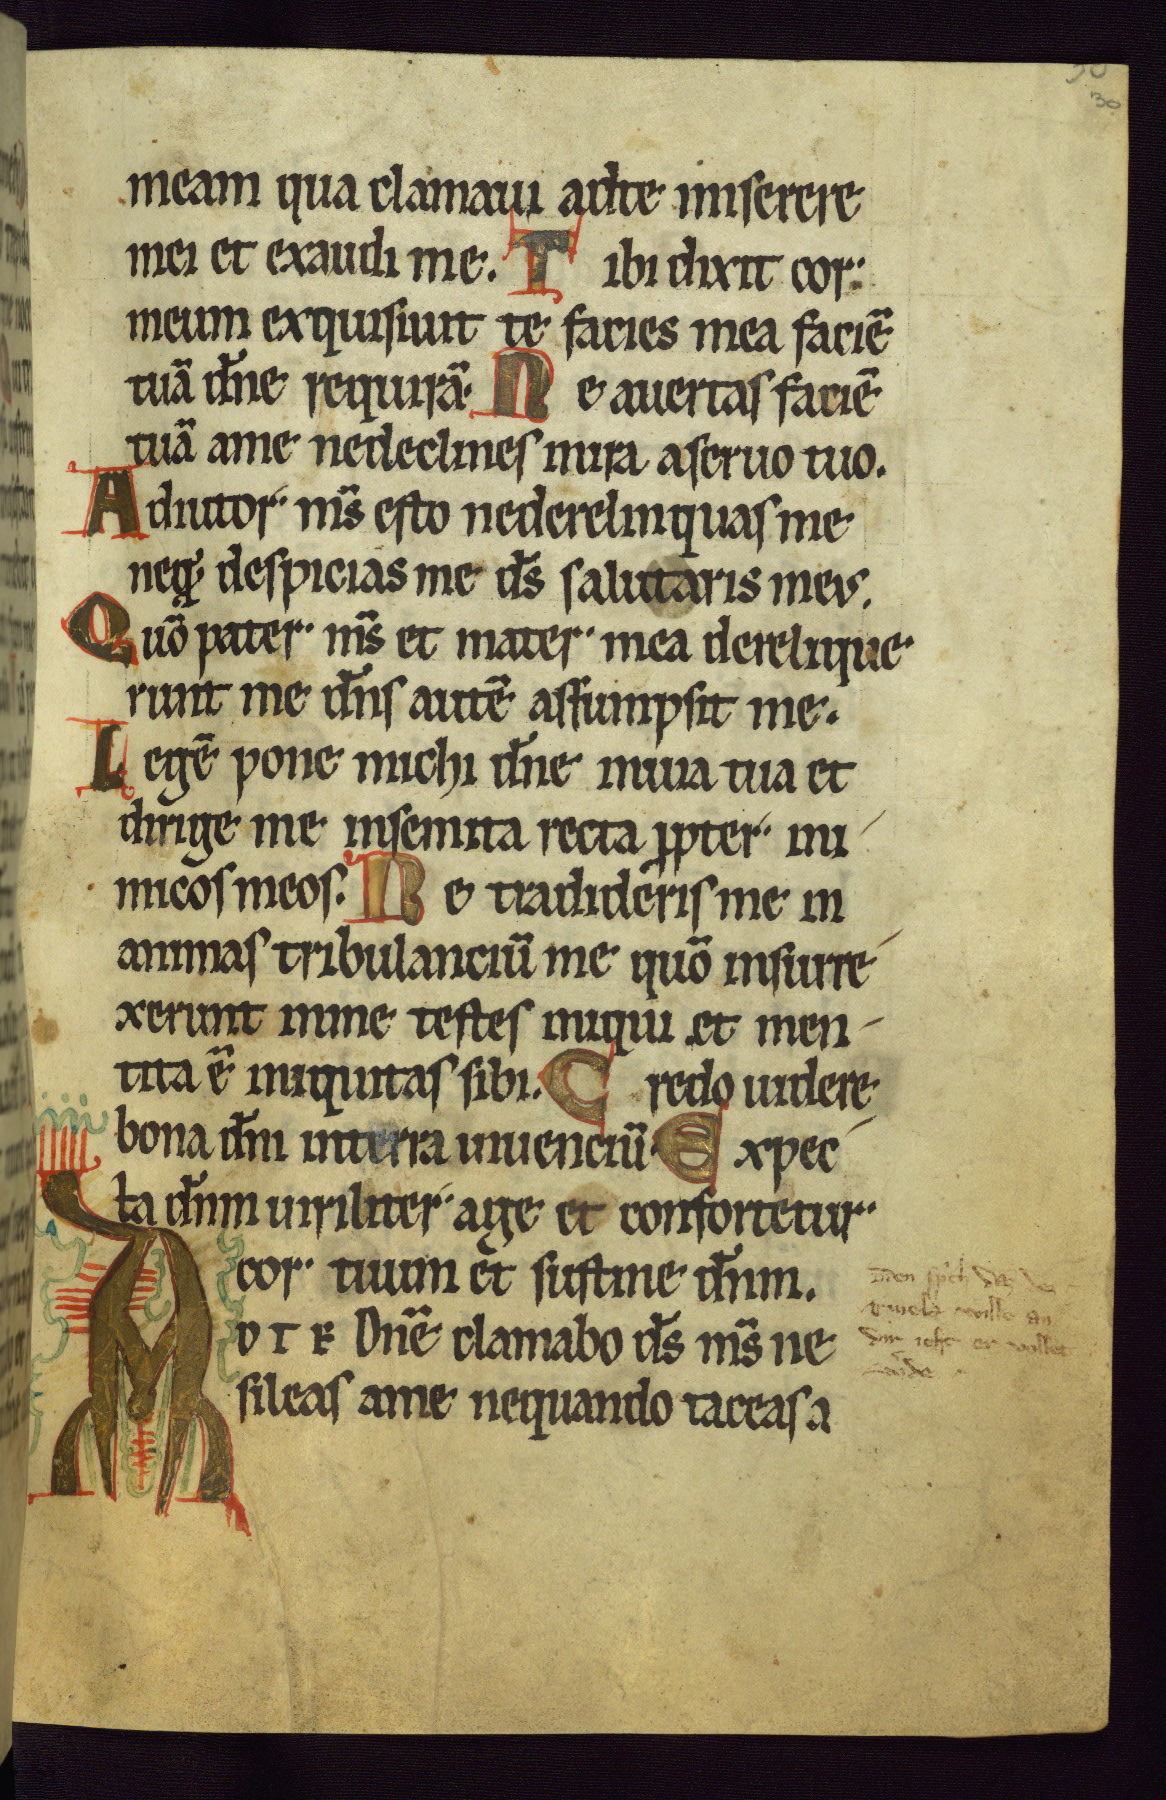 30
30
meam qua clamaui adte miserere
mei et exaudi me. Tibi dixit cor
meum exquisiuit te facies mea faciē
tuā dn̄e requirā. Ne auertas faciē
tuā ame nedeclines inira aseruo tuo.
Adiutor ms̄ esto nederelinquas me
neqꝫ despicias me ds̄ salutaris meus.
Quō pater ms̄ et mater mea derelique
runt me dn̄s autē assumpsit me.
Legē pone michi dn̄e inuia tua et
dirige me insemita recta ꝓpter ini
micos meos. Ne tradideris me in
animas tribulanciū me quō insurre
xerunt inme testes iniqui et men
tita ē iniquitas sibi. Credo uidere
bona dn̄i interra uiuenciū. Expec
ta dn̄m uiriliter age et confortetur
cor tuum et sustine dn̄m.
AD TE Dn̄e clamabo ds̄ ms̄ ne
sileas ame nequando taceas a